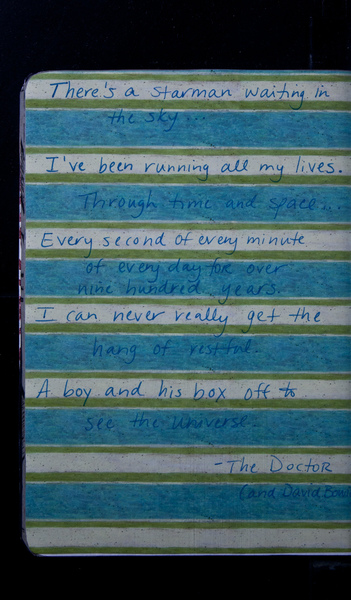 There's a starman waiting in
the sky...
I've been running all my lives.
Through time and space...
Every second of every minute
of every day for over
nine hundred years.
I can never really get the
hang of restful.
A boy and his box off to
see the universe.
-The Doctor
(and David Bow